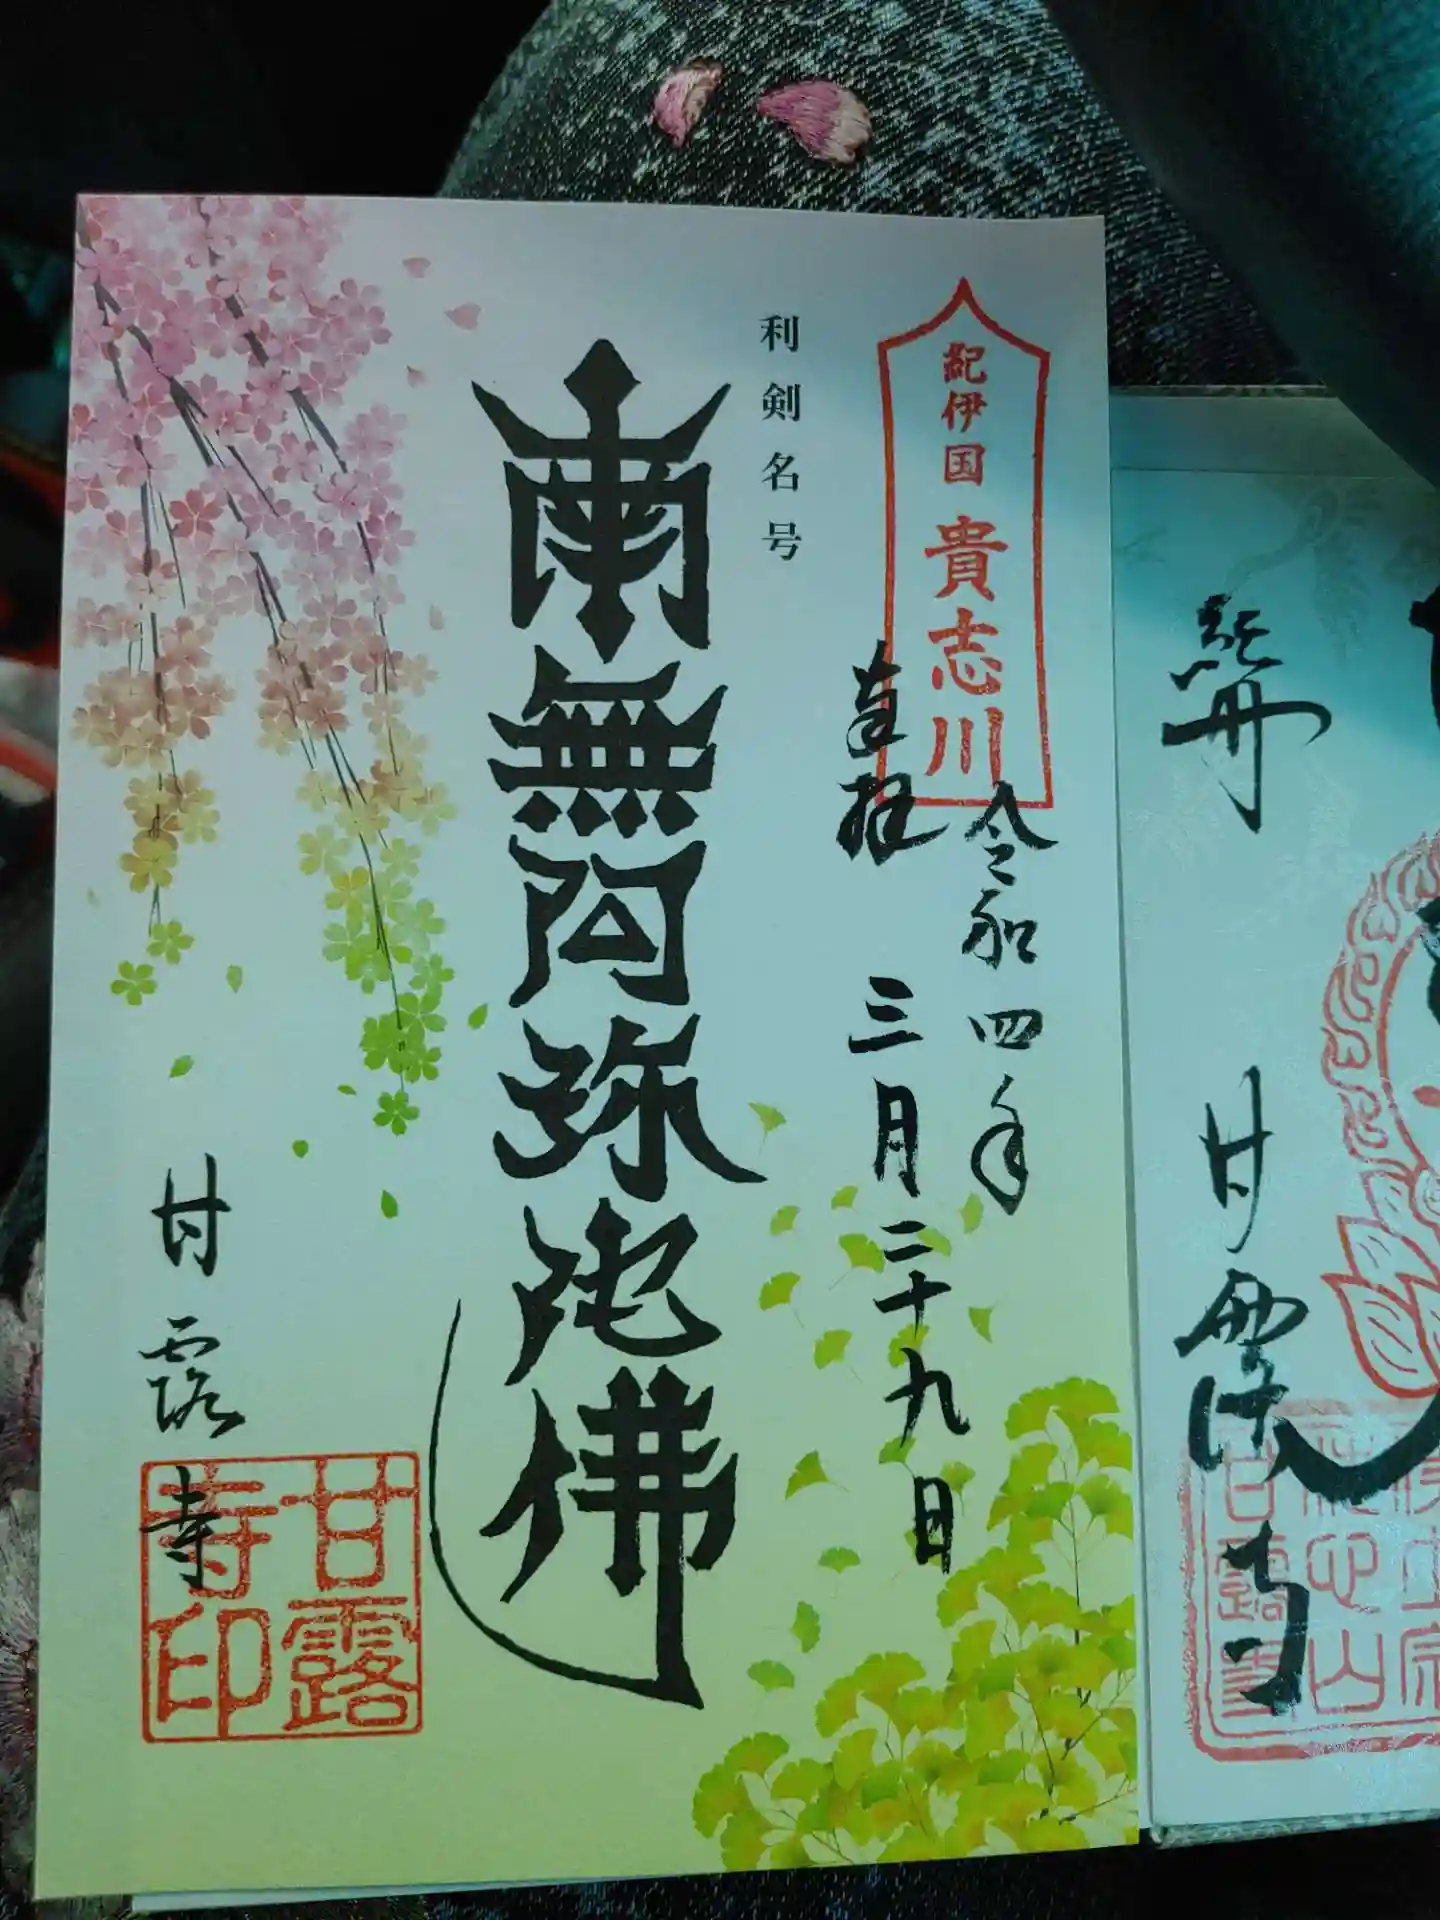 紀伊国 貴志川
令和四年
奉拝 三月二十九日
利剣名号
南無阿弥陀佛
甘露寺
甘露
寺印
甘露寺